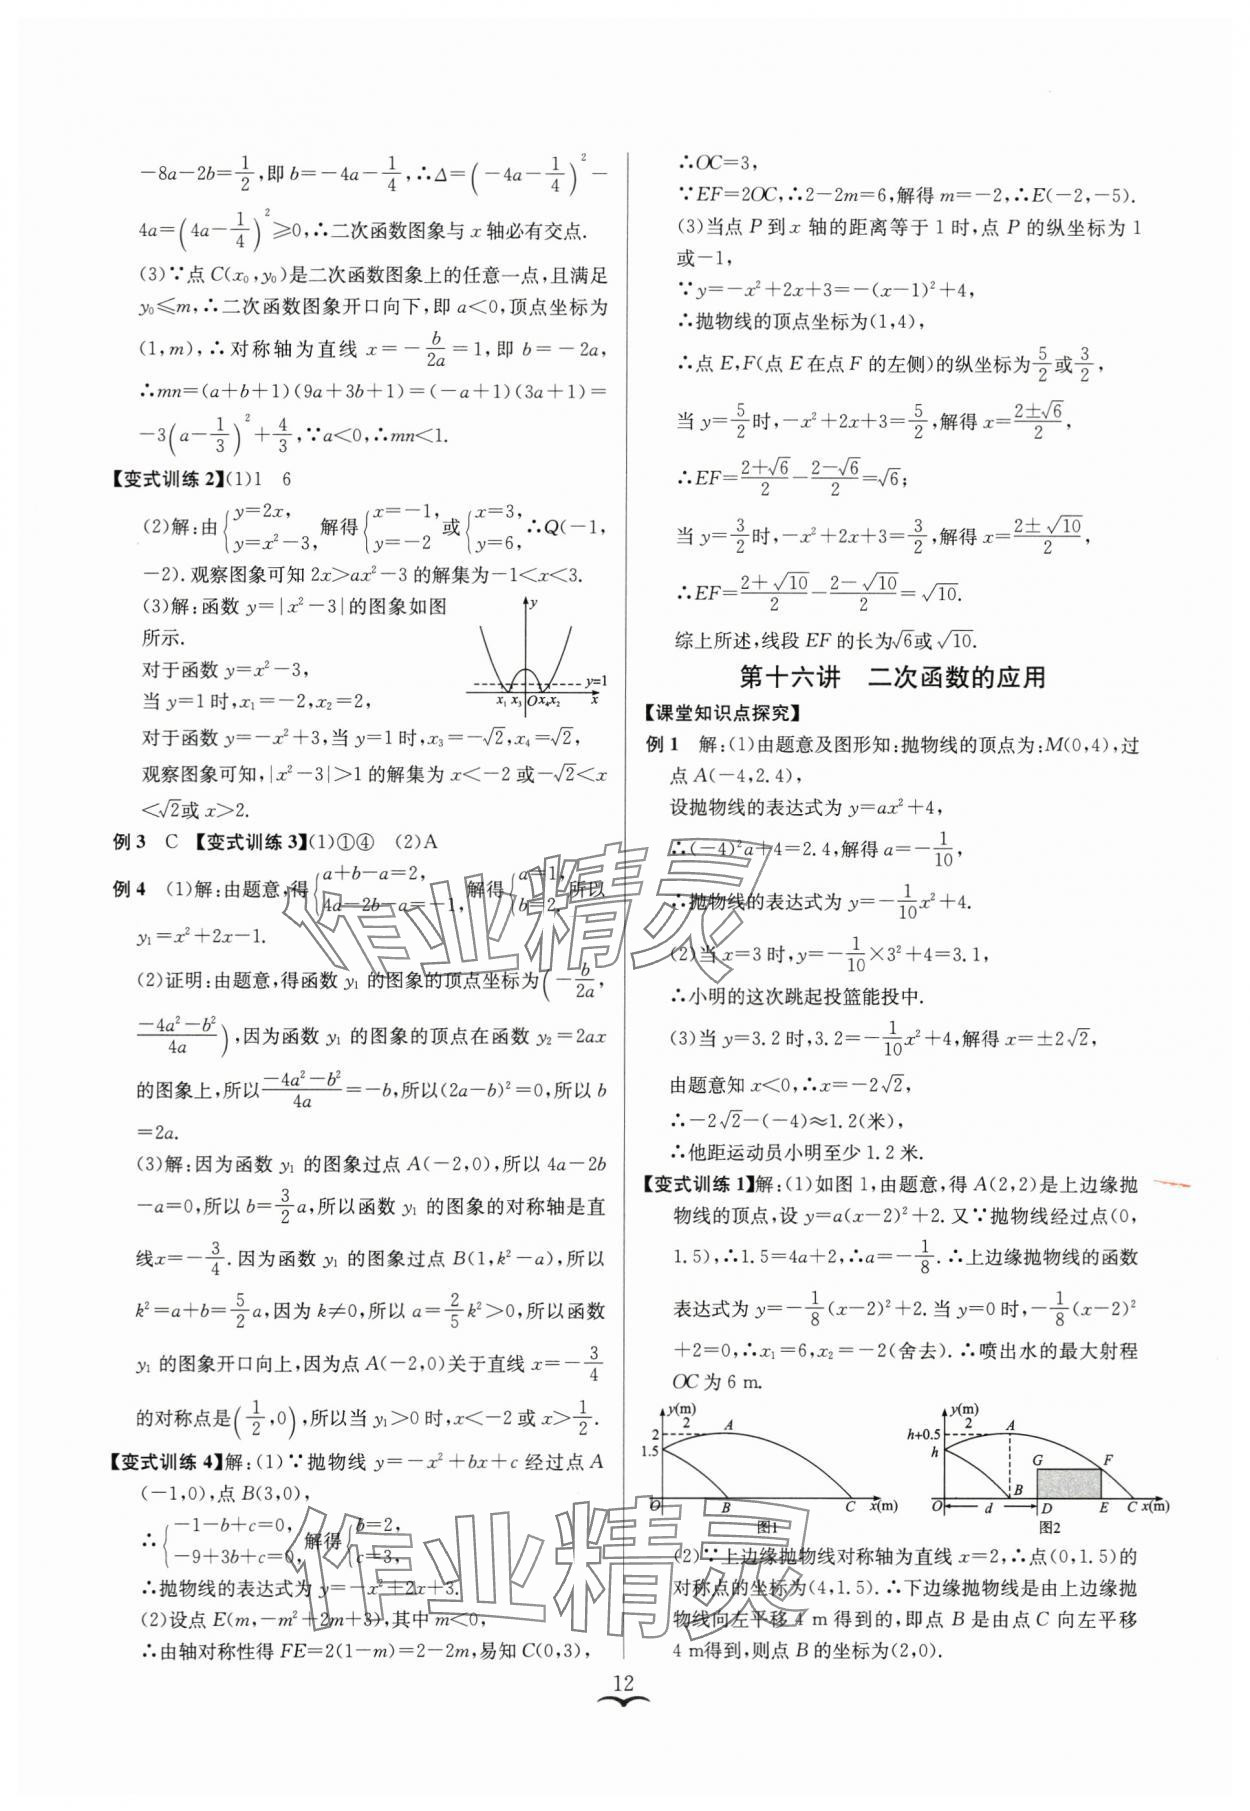 -8a-2b=1/2,即 b=-4a-1/4,∴Δ=(-4a-1/4)²-
4a=(4a-1/4)²≥0,∴二次函数图象与 x 轴必有交点.
(3)∵点 C(x₀,y₀)是二次函数图象上的任意一点,且满足
y₀≤m,∴二次函数图象开口向下,即 a<0,顶点坐标为
(1,m),∴对称轴为直线 x=-b/2a=1,即 b=-2a,
∴mn=(a+b+1)(9a+3b+1)=(-a+1)(3a+1)=
-3(a-1/3)²+4/3,∵a<0,∴mn<1.
【变式训练2】(1)1 6
(2)解:由{y=2x, y=x²-3, 解得{x=-1, y=-2 或{x=3, y=6, ∴Q(-1,
-2).观察图象可知 2x>ax²-3 的解集为-1<x<3.
(3)解:函数 y=|x²-3|的图象如图
所示.
对于函数 y=x²-3,
当 y=1 时,x₁=-2,x₂=2,
y
y=1
x₁ x₃ O x₄ x₂ x
对于函数 y=-x²+3,当 y=1 时,x₃=-√2,x₄=√2,
观察图象可知,|x²-3|>1 的解集为 x<-2 或-√2<x
<√2或 x>2.
例 3 C 【变式训练3】(1)①④ (2)A
例 4 (1)解:由题意,得{a+b-a=2, 4a-2b-a=-1, 解得{a=1, b=2, 所以
y₁=x²+2x-1.
(2)证明:由题意,得函数 y₁ 的图象的顶点坐标为(-b/2a,
(-4a²-b²)/4a),因为函数 y₁ 的图象的顶点在函数 y₂=2ax
的图象上,所以(-4a²-b²)/4a=-b,所以(2a-b)²=0,所以 b
=2a.
(3)解:因为函数 y₁ 的图象过点 A(-2,0),所以 4a-2b
-a=0,所以 b=3/2a,所以函数 y₁ 的图象的对称轴是直
线x=-3/4.因为函数 y₁ 的图象过点 B(1,k²-a),所以
k²=a+b=5/2a,因为 k≠0,所以 a=2/5k²>0,所以函数
y₁ 的图象开口向上,因为点 A(-2,0)关于直线 x=-3/4
的对称点是(1/2,0),所以当 y₁>0 时,x<-2 或x>1/2.
【变式训练4】解:(1)∵抛物线 y=-x²+bx+c 经过点 A
(-1,0),点 B(3,0),
∴{-1-b+c=0, -9+3b+c=0, 解得{b=2, c=3,
∴抛物线的表达式为 y=-x²+2x+3.
(2)设点 E(m,-m²+2m+3),其中 m<0,
∴由轴对称性得 FE=2(1-m)=2-2m,易知 C(0,3),
∴OC=3,
∵EF=2OC,∴2-2m=6,解得 m=-2,∴E(-2,-5).
(3)当点 P 到 x 轴的距离等于 1 时,点 P 的纵坐标为 1
或-1,
∵y=-x²+2x+3=-(x-1)²+4,
∴抛物线的顶点坐标为(1,4),
∴点 E,F(点 E 在点 F 的左侧)的纵坐标为5/2或3/2,
当 y=5/2时,-x²+2x+3=5/2,解得 x=(2±√6)/2,
∴EF=(2+√6)/2-(2-√6)/2=√6;
当 y=3/2时,-x²+2x+3=3/2,解得 x=(2±√10)/2,
∴EF=(2+√10)/2-(2-√10)/2=√10.
综上所述,线段 EF 的长为√6或√10.
第十六讲 二次函数的应用
【课堂知识点探究】
例 1 解:(1)由题意及图形知:抛物线的顶点为:M(0,4),过
点 A(-4,2.4),
设抛物线的表达式为 y=ax²+4,
∴(-4)²a+4=2.4,解得 a=-1/10,
∴抛物线的表达式为 y=-1/10x²+4.
(2)当 x=3 时,y=-1/10×3²+4=3.1,
∴小明的这次跳起投篮能投中.
(3)当 y=3.2 时,3.2=-1/10x²+4,解得 x=±2√2,
由题意知 x<0,∴x=-2√2,
∴-2√2-(-4)≈1.2(米),
∴他距运动员小明至少 1.2 米.
【变式训练1】解:(1)如图 1,由题意,得 A(2,2)是上边缘抛
物线的顶点,设 y=a(x-2)²+2.又∵抛物线经过点(0,
1.5),∴1.5=4a+2,∴a=-1/8.∴上边缘抛物线的函数
表达式为 y=-1/8(x-2)²+2.当 y=0 时,-1/8(x-2)²
+2=0,∴x₁=6,x₂=-2(舍去).∴喷出水的最大射程
OC 为 6 m.
y(m)
2 A
2
1.5
O B C x(m)
图1
y(m)
2 A
h+0.5
h
G F
B
O d D E C x(m)
图2
(2)∵上边缘抛物线对称轴为直线 x=2,∴点(0,1.5)的
对称点的坐标为(4,1.5).∴下边缘抛物线是由上边缘抛
物线向左平移 4 m 得到的,即点 B 是由点 C 向左平移
4 m得到,则点 B 的坐标为(2,0).
12
作业精灵
作业精灵